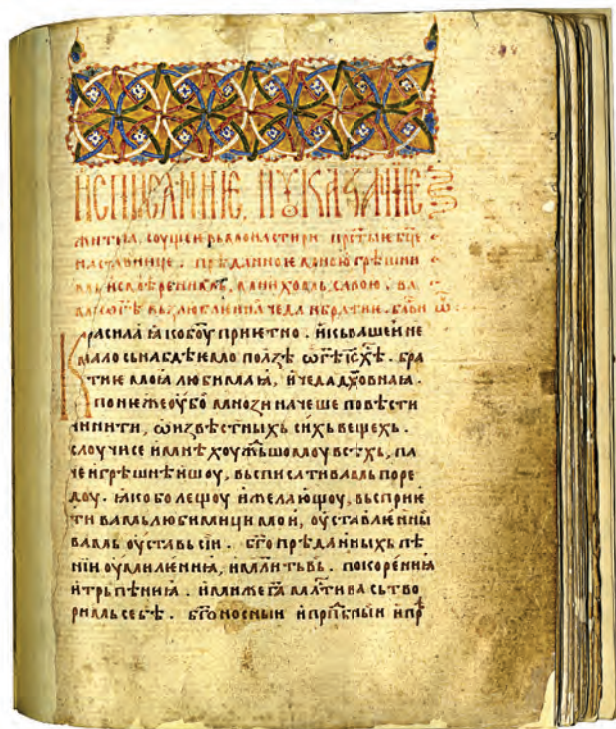 ИСПИСАНИІЕ. И ꙊКАЗАНИІЕ
житїа, соущеи въ монастири прⷭ҇тыѥ бц҃е
наставнице. прѣданноѥ
савою. въ
ѡ г҃ѣ възлюблѥннаа чеда и братиѥ. бл҃ви
ꙗко боу приѥтно. и къ вашеи не
мало сьнабдѣѥмо ползѣ ѡ г҃ѣ і҃с х҃ѣ. бра
тиѥ моꙗ любимаꙗ, и чеда дх҃овнаꙗ.
понѥже оубо мнози начеше повѣсти
чинити, ѡ извѣстныхь сихь вещехь.
слоучисе и мнѣ хоуждьшомоу всѣхь, па
че и грѣшнѣишоу, вьсписати вамь поре
доу. ꙗко болешоу и желающоу, вьсприѥ
ти вамь любимици мои, оуставлѥнны
вамь оуставь сїи. б҃гопрѣданныхь пѣ
нїи оумилѥнниꙗ, и млитьвь. покорѥниꙗ
и трьпѣниꙗ. имиже б҃га млⷭ҇тива сьтво
римь себѣ. б҃гоносныи и прпⷣбныи и прⷣ